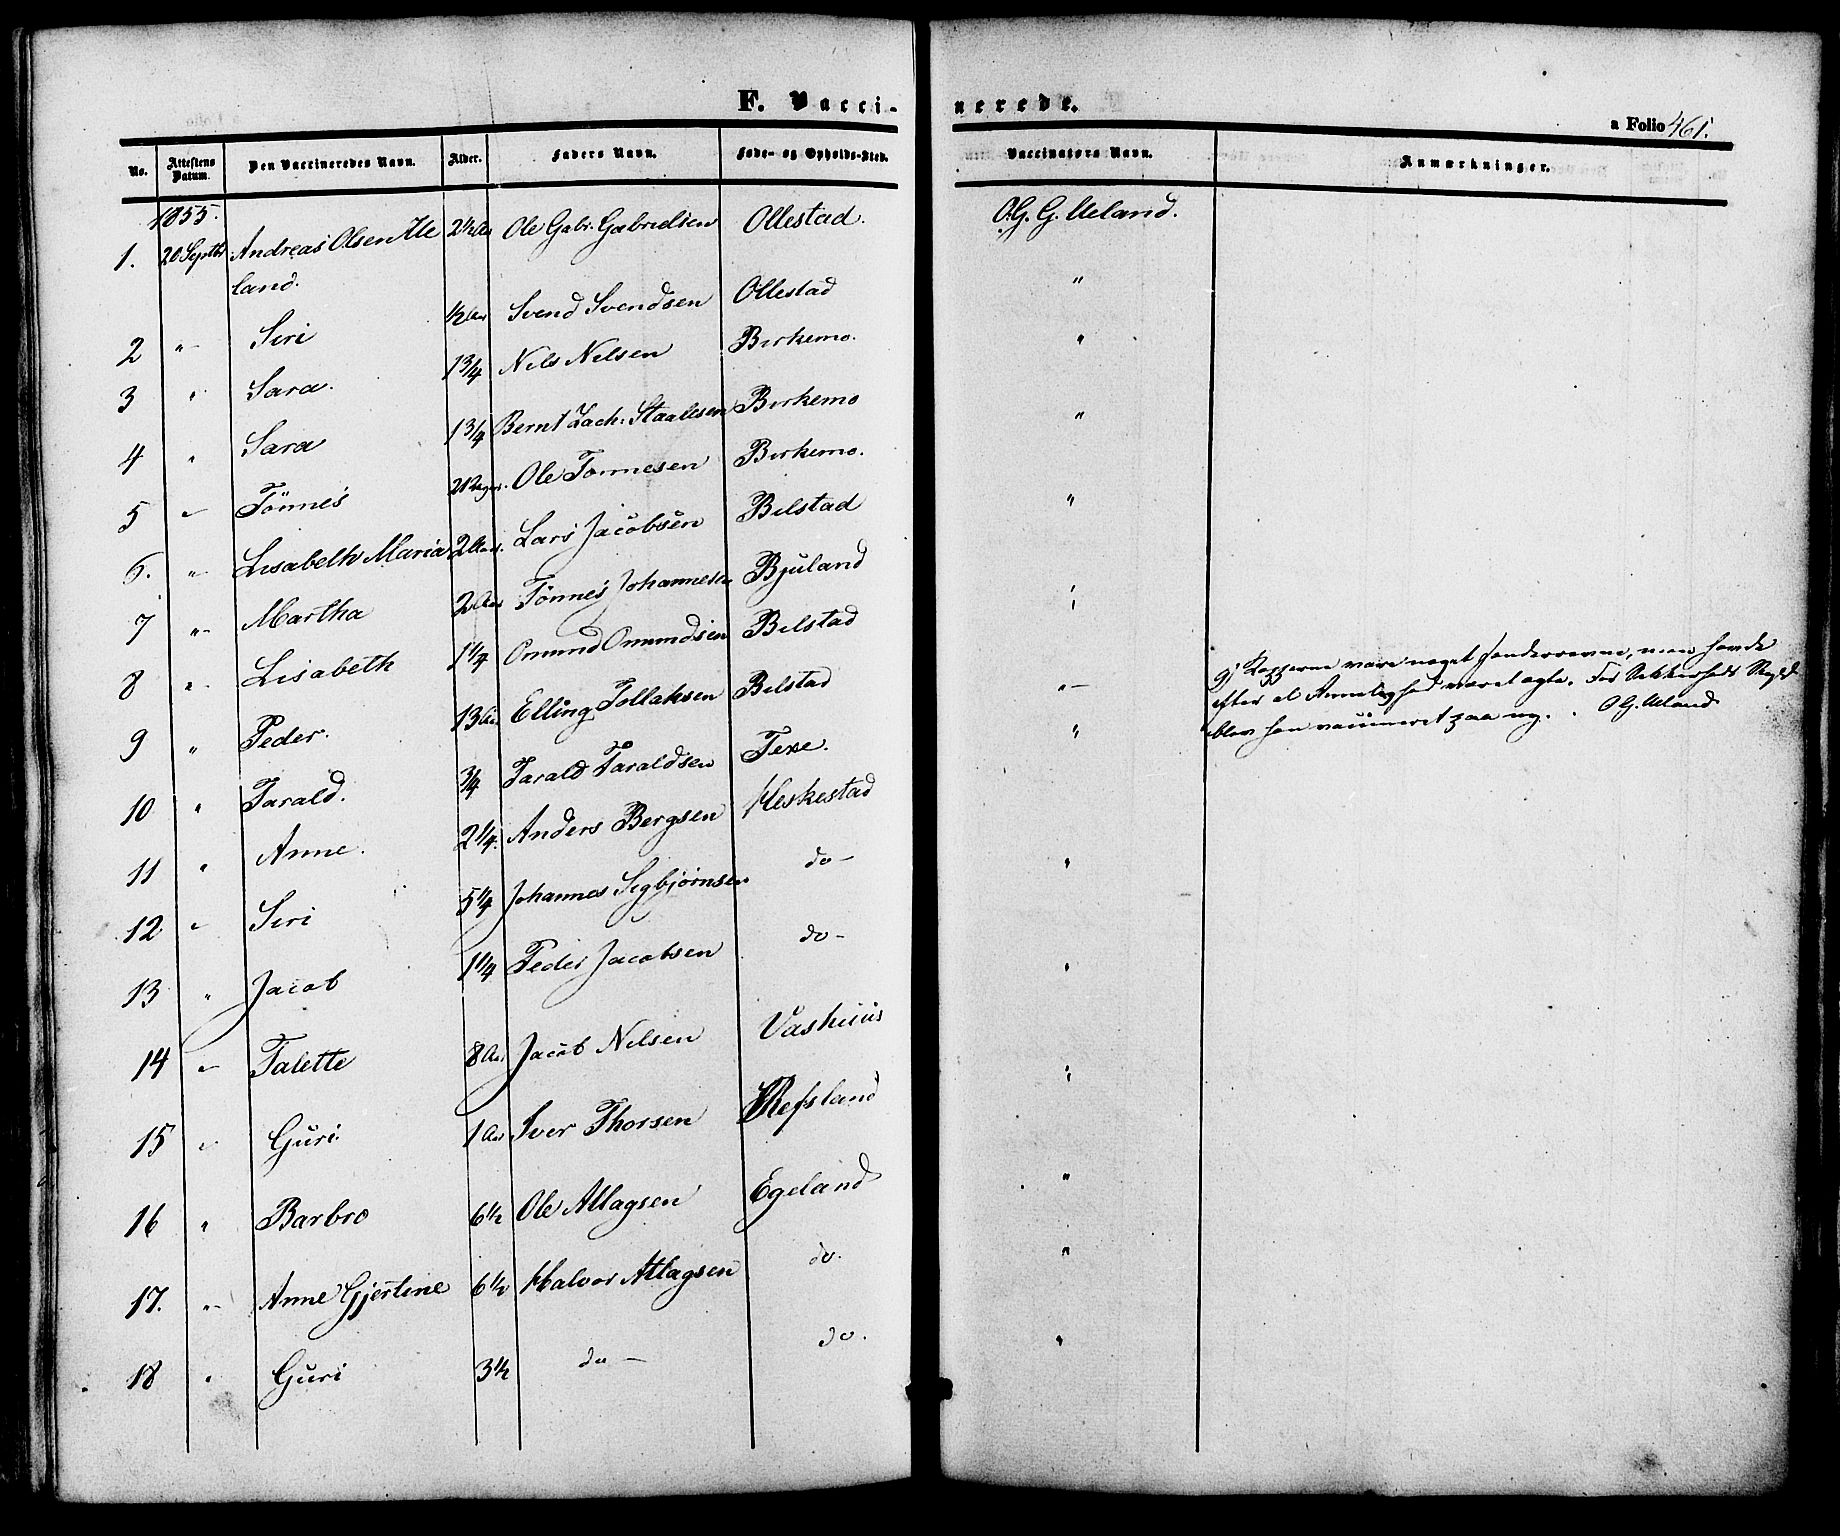 F. Vacci-
nerede.
a Folio 461.
No. Attestens Datum. Den Vaccineredes Navn. Alder. Faders Navn. Føde- og Opholds-Sted. Vaccinators Navn. Anmærkninger.
1855.
1. 20 Septbr Andreas Olsen Ue 2½ Ole Gabr. Gabrielsen Ollestad. O. G. G. Ueland.
land.
2 " Siri ½ Svend Svendsen Ollestad "
3 " Sara. 1¾ Nils Nilsen Birkemo. "
4 " Sara 1¾ Bernt Zach. Staalesen Birkemo "
5 " Tönnes Ole Tönnesen Birkemo. "
6. " Lisabeth Maria 2 Lars Jacobsen Bilstad
7 " Martha 2 Tönnes Johannesen Bjuland "
8 " Lisabeth 1¼ Omund Omundsen Bilstad "
9 " Peder. 13 Elling Tollaksen Bilstad "
9) Kopperne vare noget men havde
efter al ægte. For Sikkerheds Skyld
blev han vaccineret paa ny. O G. Ueland
10 " Tarald. ¾ Tarald Taraldsen Texe.
11 " Anne. 2¼. Anders Bergsen Heskestad "
12 " Siri 5¼ Johannes Sigbjørnsen do -
13 " Jacob 1¼ Peder Jacobsen do - "
14 " Talette 8 Jacob Nilsen Vashuus "
15 " Guri. 1 Iver Thorsen Refsland
16 " Barbro 6½ Ole Atlagsen Egeland "
17. " Anne Gjertine 6½ Halvor Atlagsen do. "
18 " Guri 3½ do - do. "